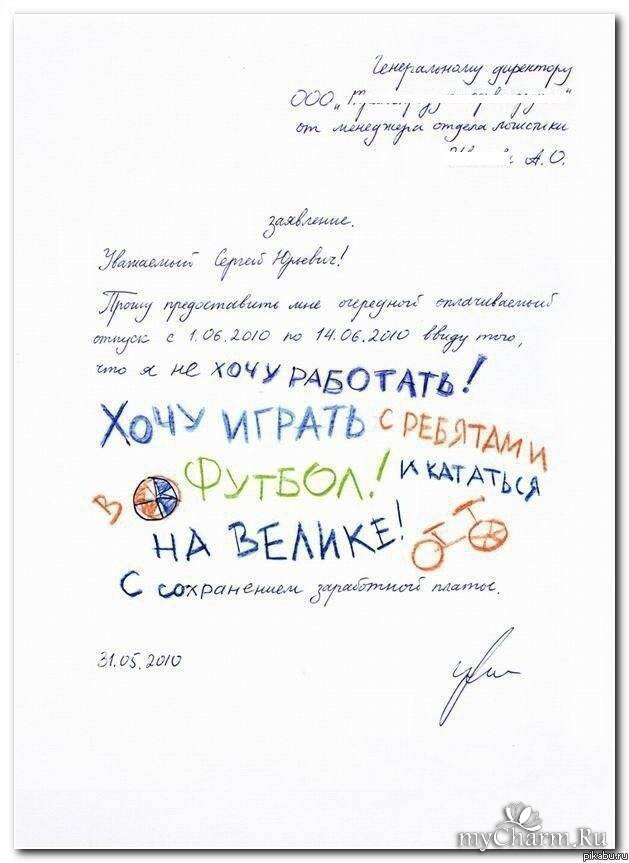 Генеральному директору
ООО „
от менеджера отдела логистики
А.О.
заявление.
Уважаемый Сергей Юрьевич!
Прошу предоставить мне очередной оплачиваемый
отпуск с 1.06.2010 по 14.06.2010 ввиду того,
что я не хочу РАБОТАТЬ!
ХОЧУ ИГРАТЬ С РЕБЯТАМИ
В ФУТБОЛ! И КАТАТЬСЯ
НА ВЕЛИКЕ!
С сохранением заработной платы.
31.05.2010
myCharm.Ru
pikabu.ru